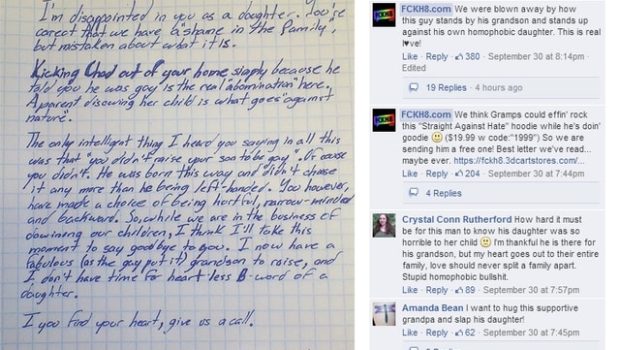 I'm disappointed in you as a daughter. You're
corect that we have a "shame in the family",
but mistaken about what it is.
Kicking Chad out of your home simply because he
told you he was gay is the real "abomination" here.
Apparent disowning her child is what goes "against
nature".
The only intelligent thing I heard you saying in all this
was that "you didn't raise your son to be gay". Of course
you didn't. He was born this way and didn't choose
it any more than he being left-handed. You however,
have made a choice of being hurtful, narrow-minded
and backward. So, while we are in the business of
disowning our children, I think I'll take this
moment to say goodbye to you. I now have a
fabulous (as the gay put it) grandson to raise, and
I don't have time for heart less B-word of a
daughter.
I you find your heart, give us a call.
FCKH8.com We were blown away by how
this guy stands by his grandson and stands up
against his own homophobic daughter. This is real
l♥ve!
Like · Reply · 380 · September 30 at 8:14pm ·
Edited
19 Replies · 4 hours ago
FCKH8.com We think Gramps could effin' rock
this "Straight Against Hate" hoodie while he's doin'
goodie 🙂 ($19.99 w code:"1999") So we are
sending him a free one! Best letter we've read...
maybe ever. https://fckh8.3dcartstores.com/...
Like · Reply · 204 · September 30 at 7:44pm
4 Replies
Crystal Conn Rutherford How hard it must
be for this man to know his daughter was so
horrible to her child 🙁 I'm thankful he is there for
his grandson, but my heart goes out to their entire
family, love should never split a family apart.
Stupid homophobic bullshit.
Like · Reply · 89 · September 30 at 7:57pm
Amanda Bean I want to hug this supportive
grandpa and slap his daughter!
Like · Reply · 62 · September 30 at 7:45pm